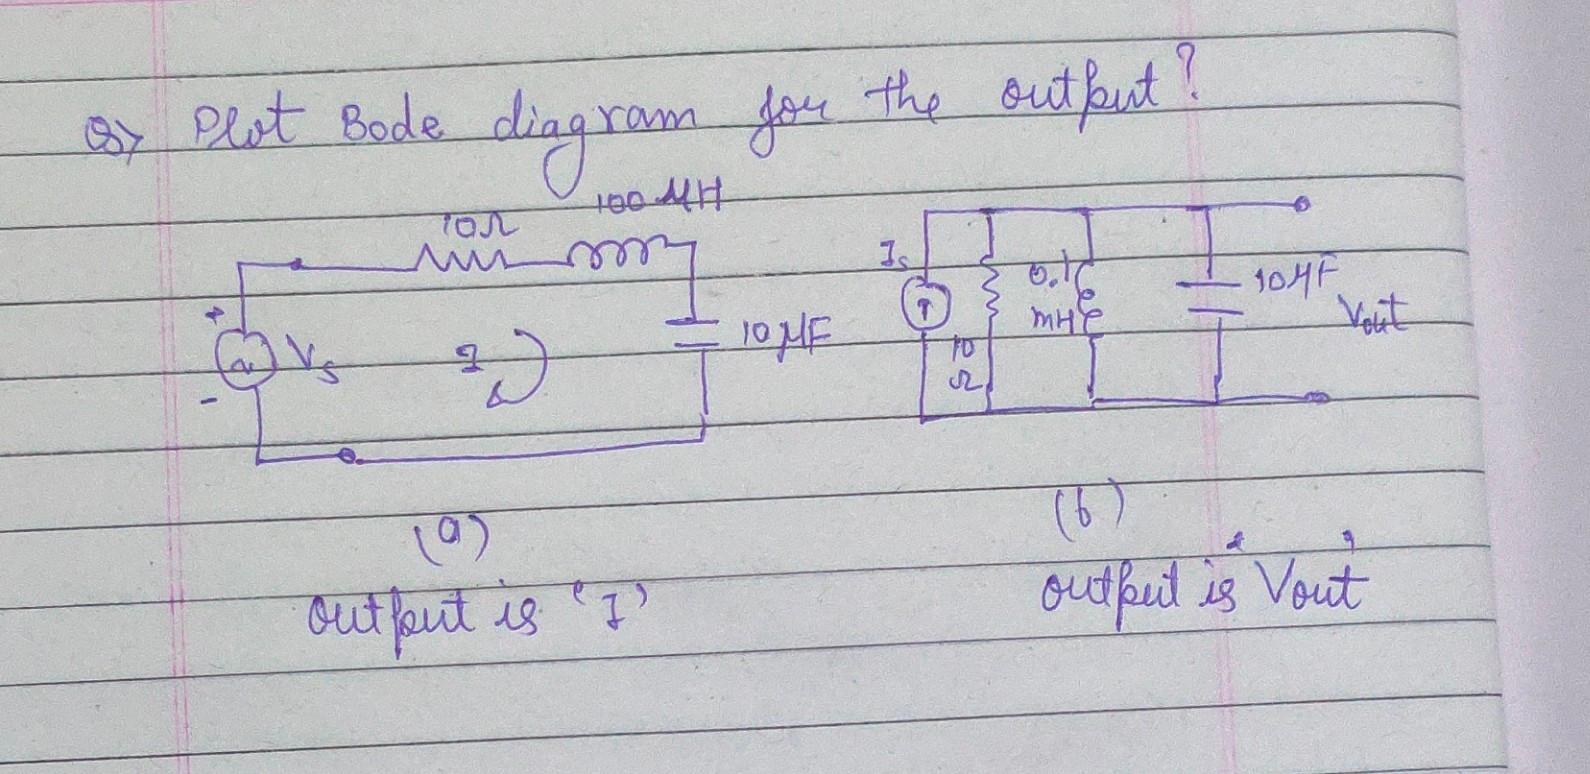 Q> Plot Bode diagram for the output?
10Ω 100 μH
+ Vs - I 10 μF
Is 10 Ω 0.1 mH 10μF Vout
(a) (b)
output is 'I' output is 'Vout'